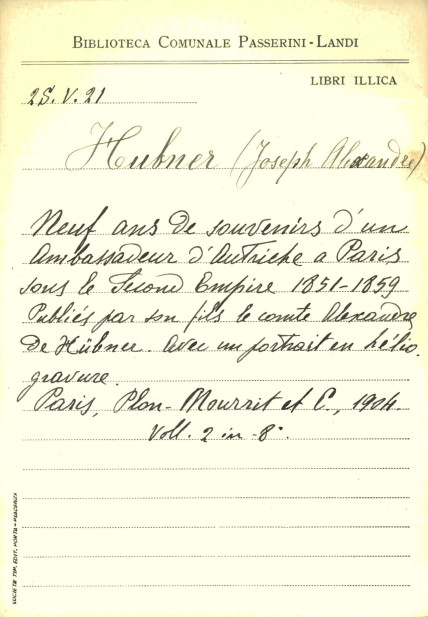 BIBLIOTECA COMUNALE PASSERINI-LANDI
LIBRI ILLICA
2S.V.21
Hubner (Joseph Alexandre)
Neuf ans de souvenirs d'un
Ambassadeur d'Autriche a Paris
sous le Second Empire 1851-1859
Publiés par son fils le comte Alexandre
de Hübner. Avec un portrait en hélio-
gravure.
Paris, Plon-Mourrit et C., 1904.
Voll. 2 in-8°
SOCIETÀ TIP. EDIT. PORTA - PIACENZA